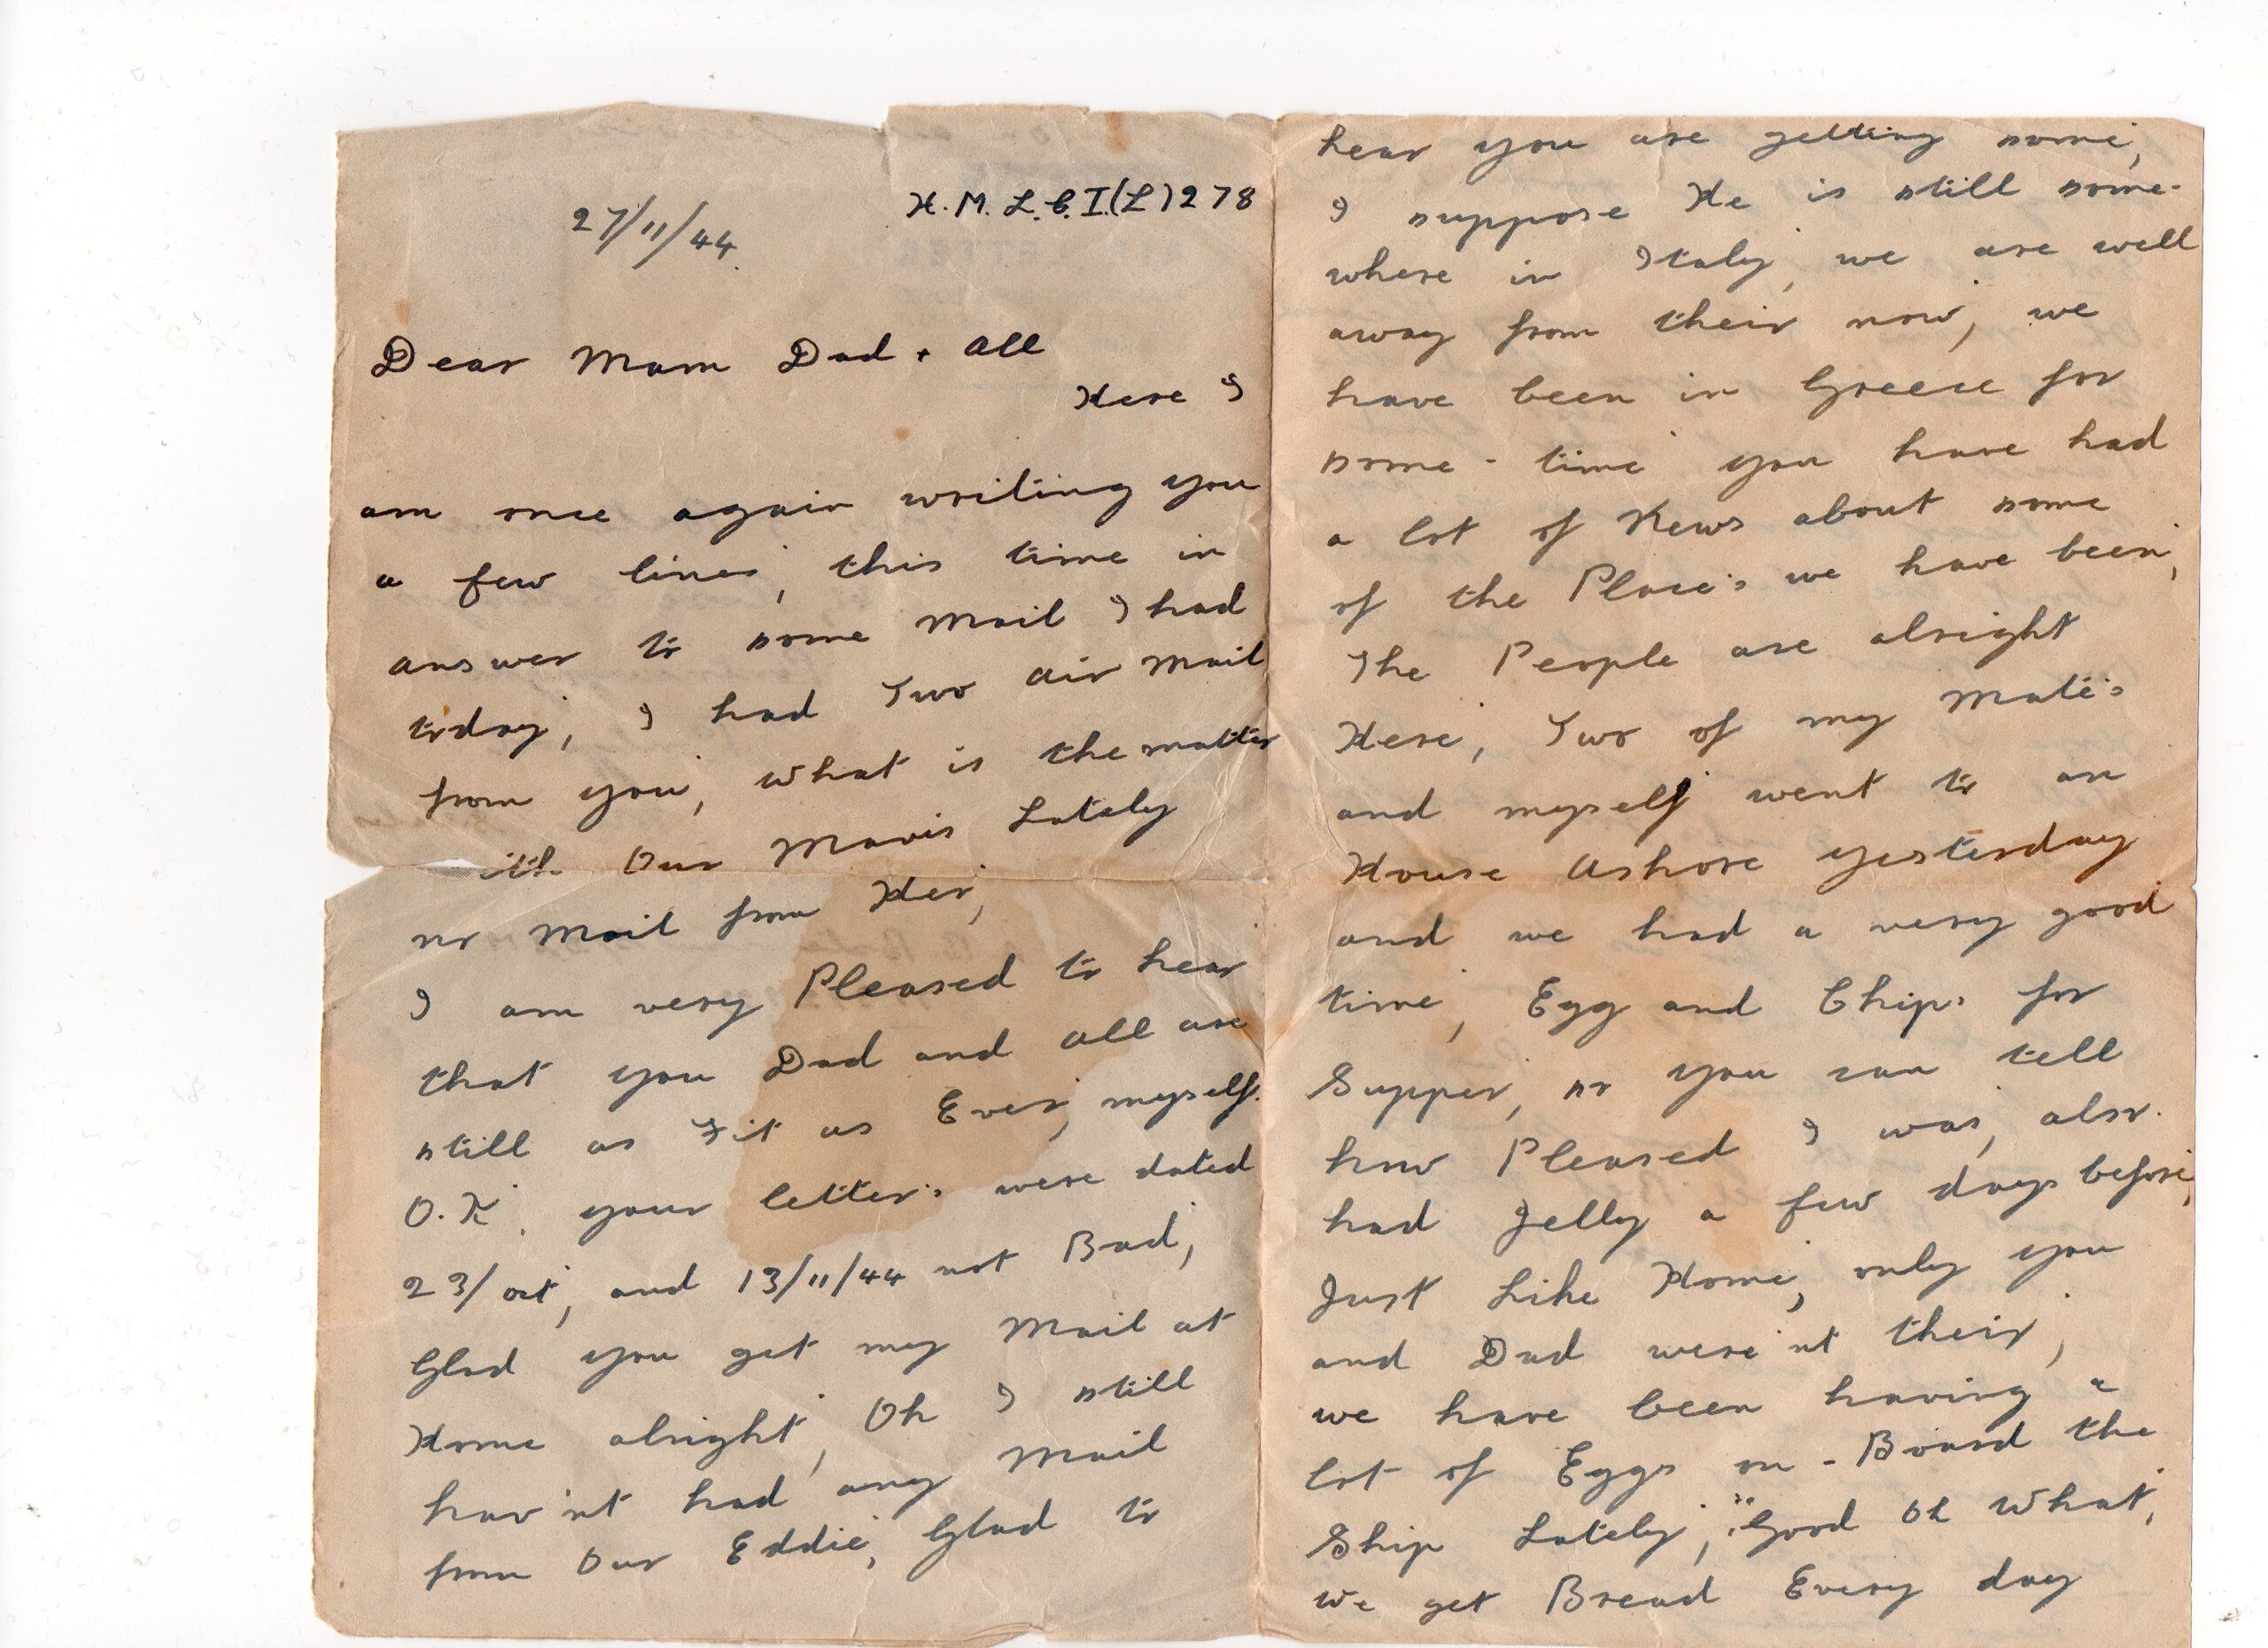 27/11/44
H.M.L.C.I.(L) 278
Dear Mam Dad + All
Here I
am once again writing you
a few lines, this time in
answer to some Mail I had
today, I had Two Air Mail
from you, what is the matter
ith Our Mavis Lately
no Mail from Her,
I am very Pleased to hear
that you Dad and All are
still as Fit as Ever, myself
O.K. your letter's were dated
23/oct, and 13/11/44 not Bad,
Glad you get my Mail at
Home alright, Oh I still
hav'nt had any Mail
from Our Eddie, Glad to
hear you are getting some,
I suppose He is still some-
where in Italy, we are well
away from their now, we
have been in Greece for
some-time you have had
a lot of News about some
of the Place's we have been,
The People are alright
Here, Two of my Mate's
and myself went to an
House Ashore yesterday
and we had a very good
time, Egg and Chips for
Supper, so you can tell
how Pleased I was, also
had Jelly a few days before,
Just Like Home, only you
and Dad were'nt their,
we have been having a
lot of Eggs on-Board the
Ship Lately, "Good Oh what,
we get Bread Every day